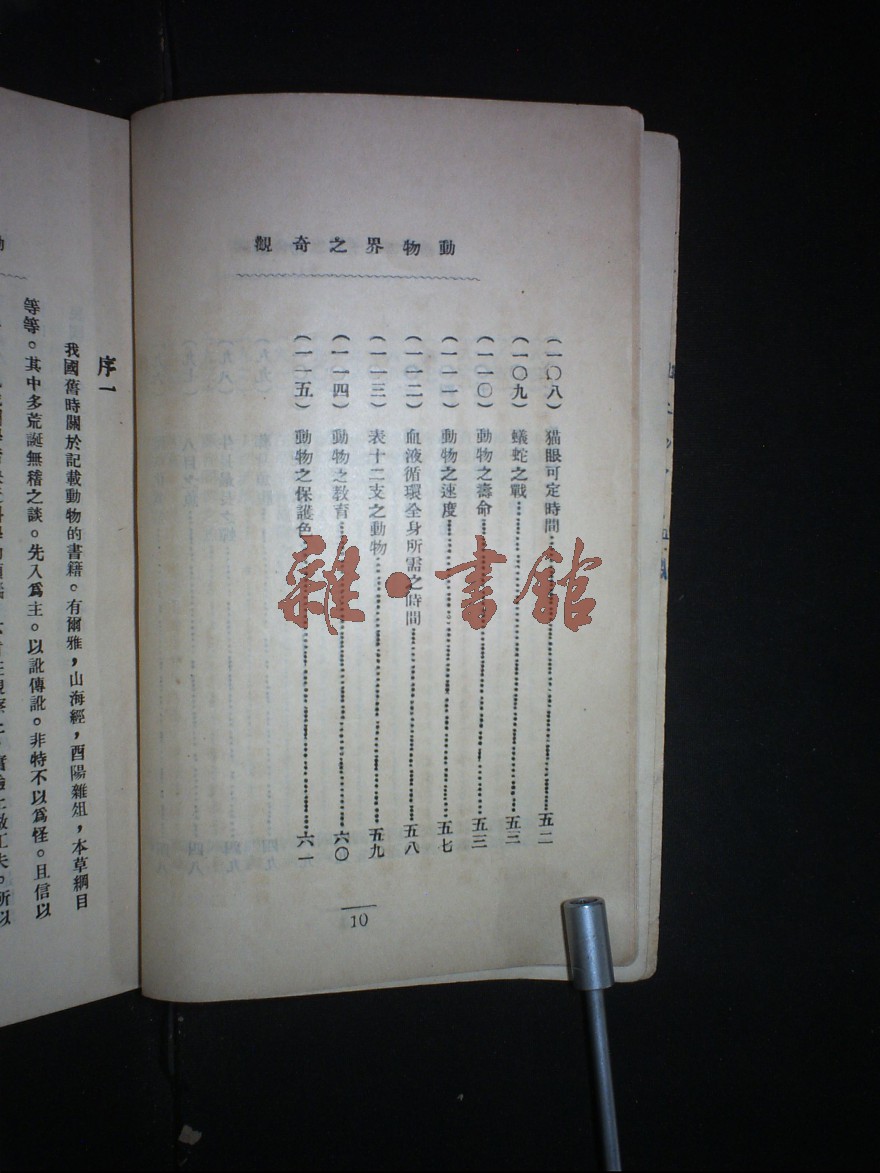 動物界之奇觀
(一〇八) 猫眼可定時間……五二
(一〇九) 蟻蛇之戰……五二
(一一〇) 動物之壽命……五三
(一一一) 動物之速度……五七
(一一二) 血液循環全身所需之時間……五八
(一一三) 表十二支之動物……五九
(一一四) 動物之教育……六〇
(一一五) 動物之保護色……六一
10
雜·書館
序一
我國舊時關於記載動物的書籍。有爾雅,山海經,酉陽雜俎,本草綱目
等等。其中多荒誕無稽之談。先入爲主。以訛傳訛。非特不以爲怪。且信以